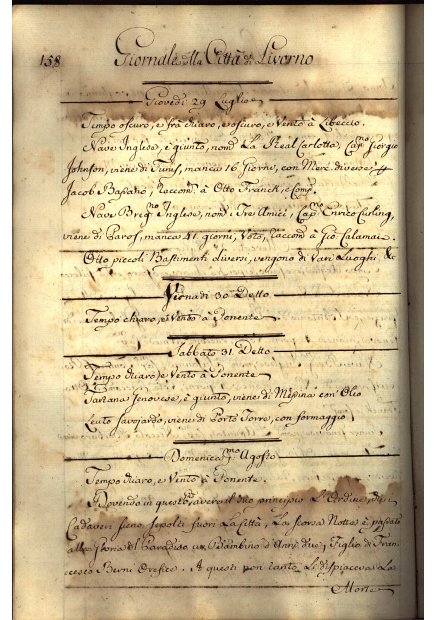 158
Giornale della Città di Livorno
Giovedi 29 Luglio
Tempo oscuro, e frà chiaro, e oscuro, e Vento à Libeccio.
Nave Inglese, è giunto, nomª La Real Carlotta, Capno Giorgio
Johnson, viene di Tunis, manca 16 Giorni, con Merc. diverse
Jacob Bassano, Raccomª à Otto Franck, e Comp.
Nave Bregno Inglese, nomª i Tre Amici, Capno Enrico Curling,
viene di Paros, manca 41 giorni, Voto, Raccomª à Gio Calamai.
Otto piccoli Bastimenti diversi, vengono di Vari Luoghi &c
Venerdi 30 Detto
Tempo chiaro, e Vento à Ponente
Sabbato 31 Detto
Tempo chiaro, e Vento à Ponente
Tartana Jenovese, è giunto, viene di Messina con Olio
Leuto Savojardo, viene di Porto Torre, con formaggio
Domenica pmo Agosto
Tempo chiaro, e Vento à Ponente.
Dovendo in questo avere il suo principio L'Ordine, che i
Cadaveri sieno sepolti fuori La Città, La scorsa Notte è passato
alla Gloria del Paradiso un Bambino d'Anni due, Figlio di Fran
cesco Berni Orefice. A questi non tanto Li dispiaceva La
Morte